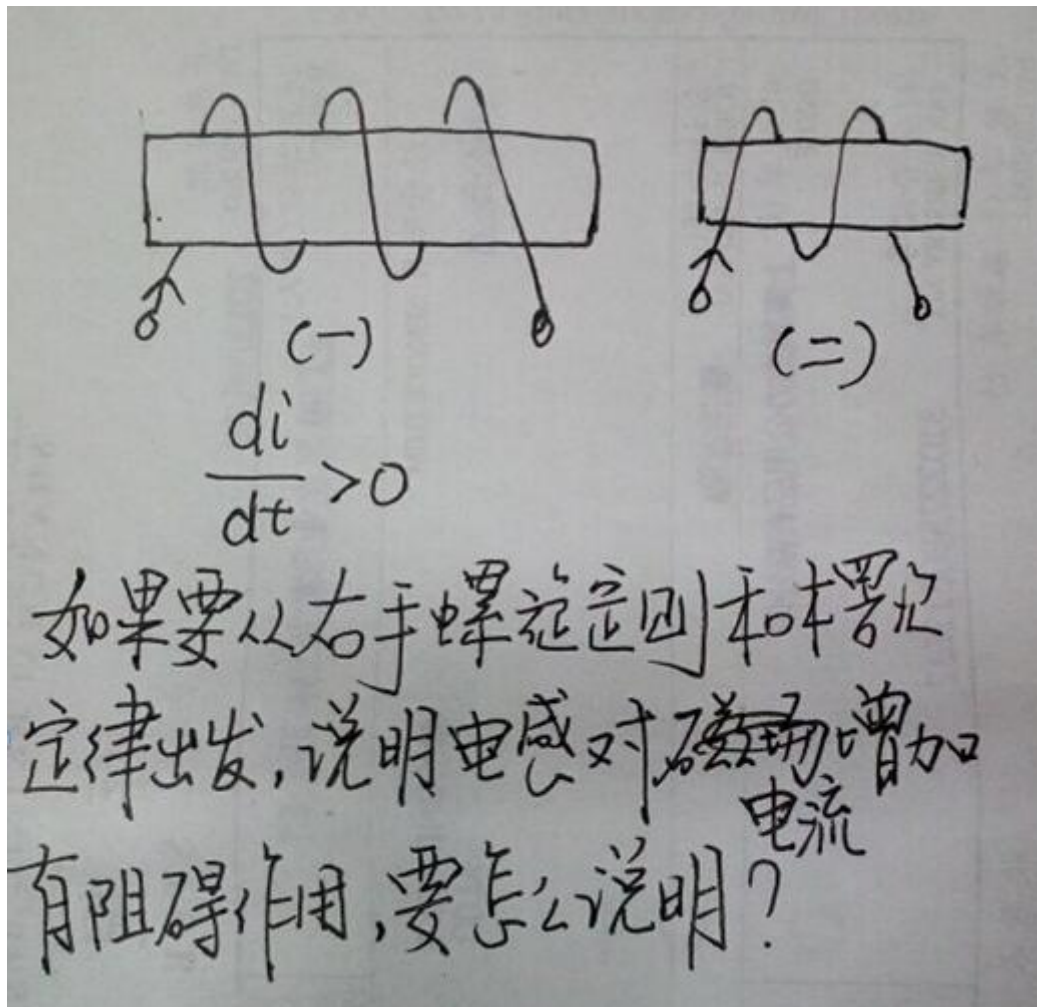 (一)
(二)
di/dt >0
如果要从右手螺旋定则和楞次
定律出发,说明电感对电流增加
有阻碍作用,要怎么说明?